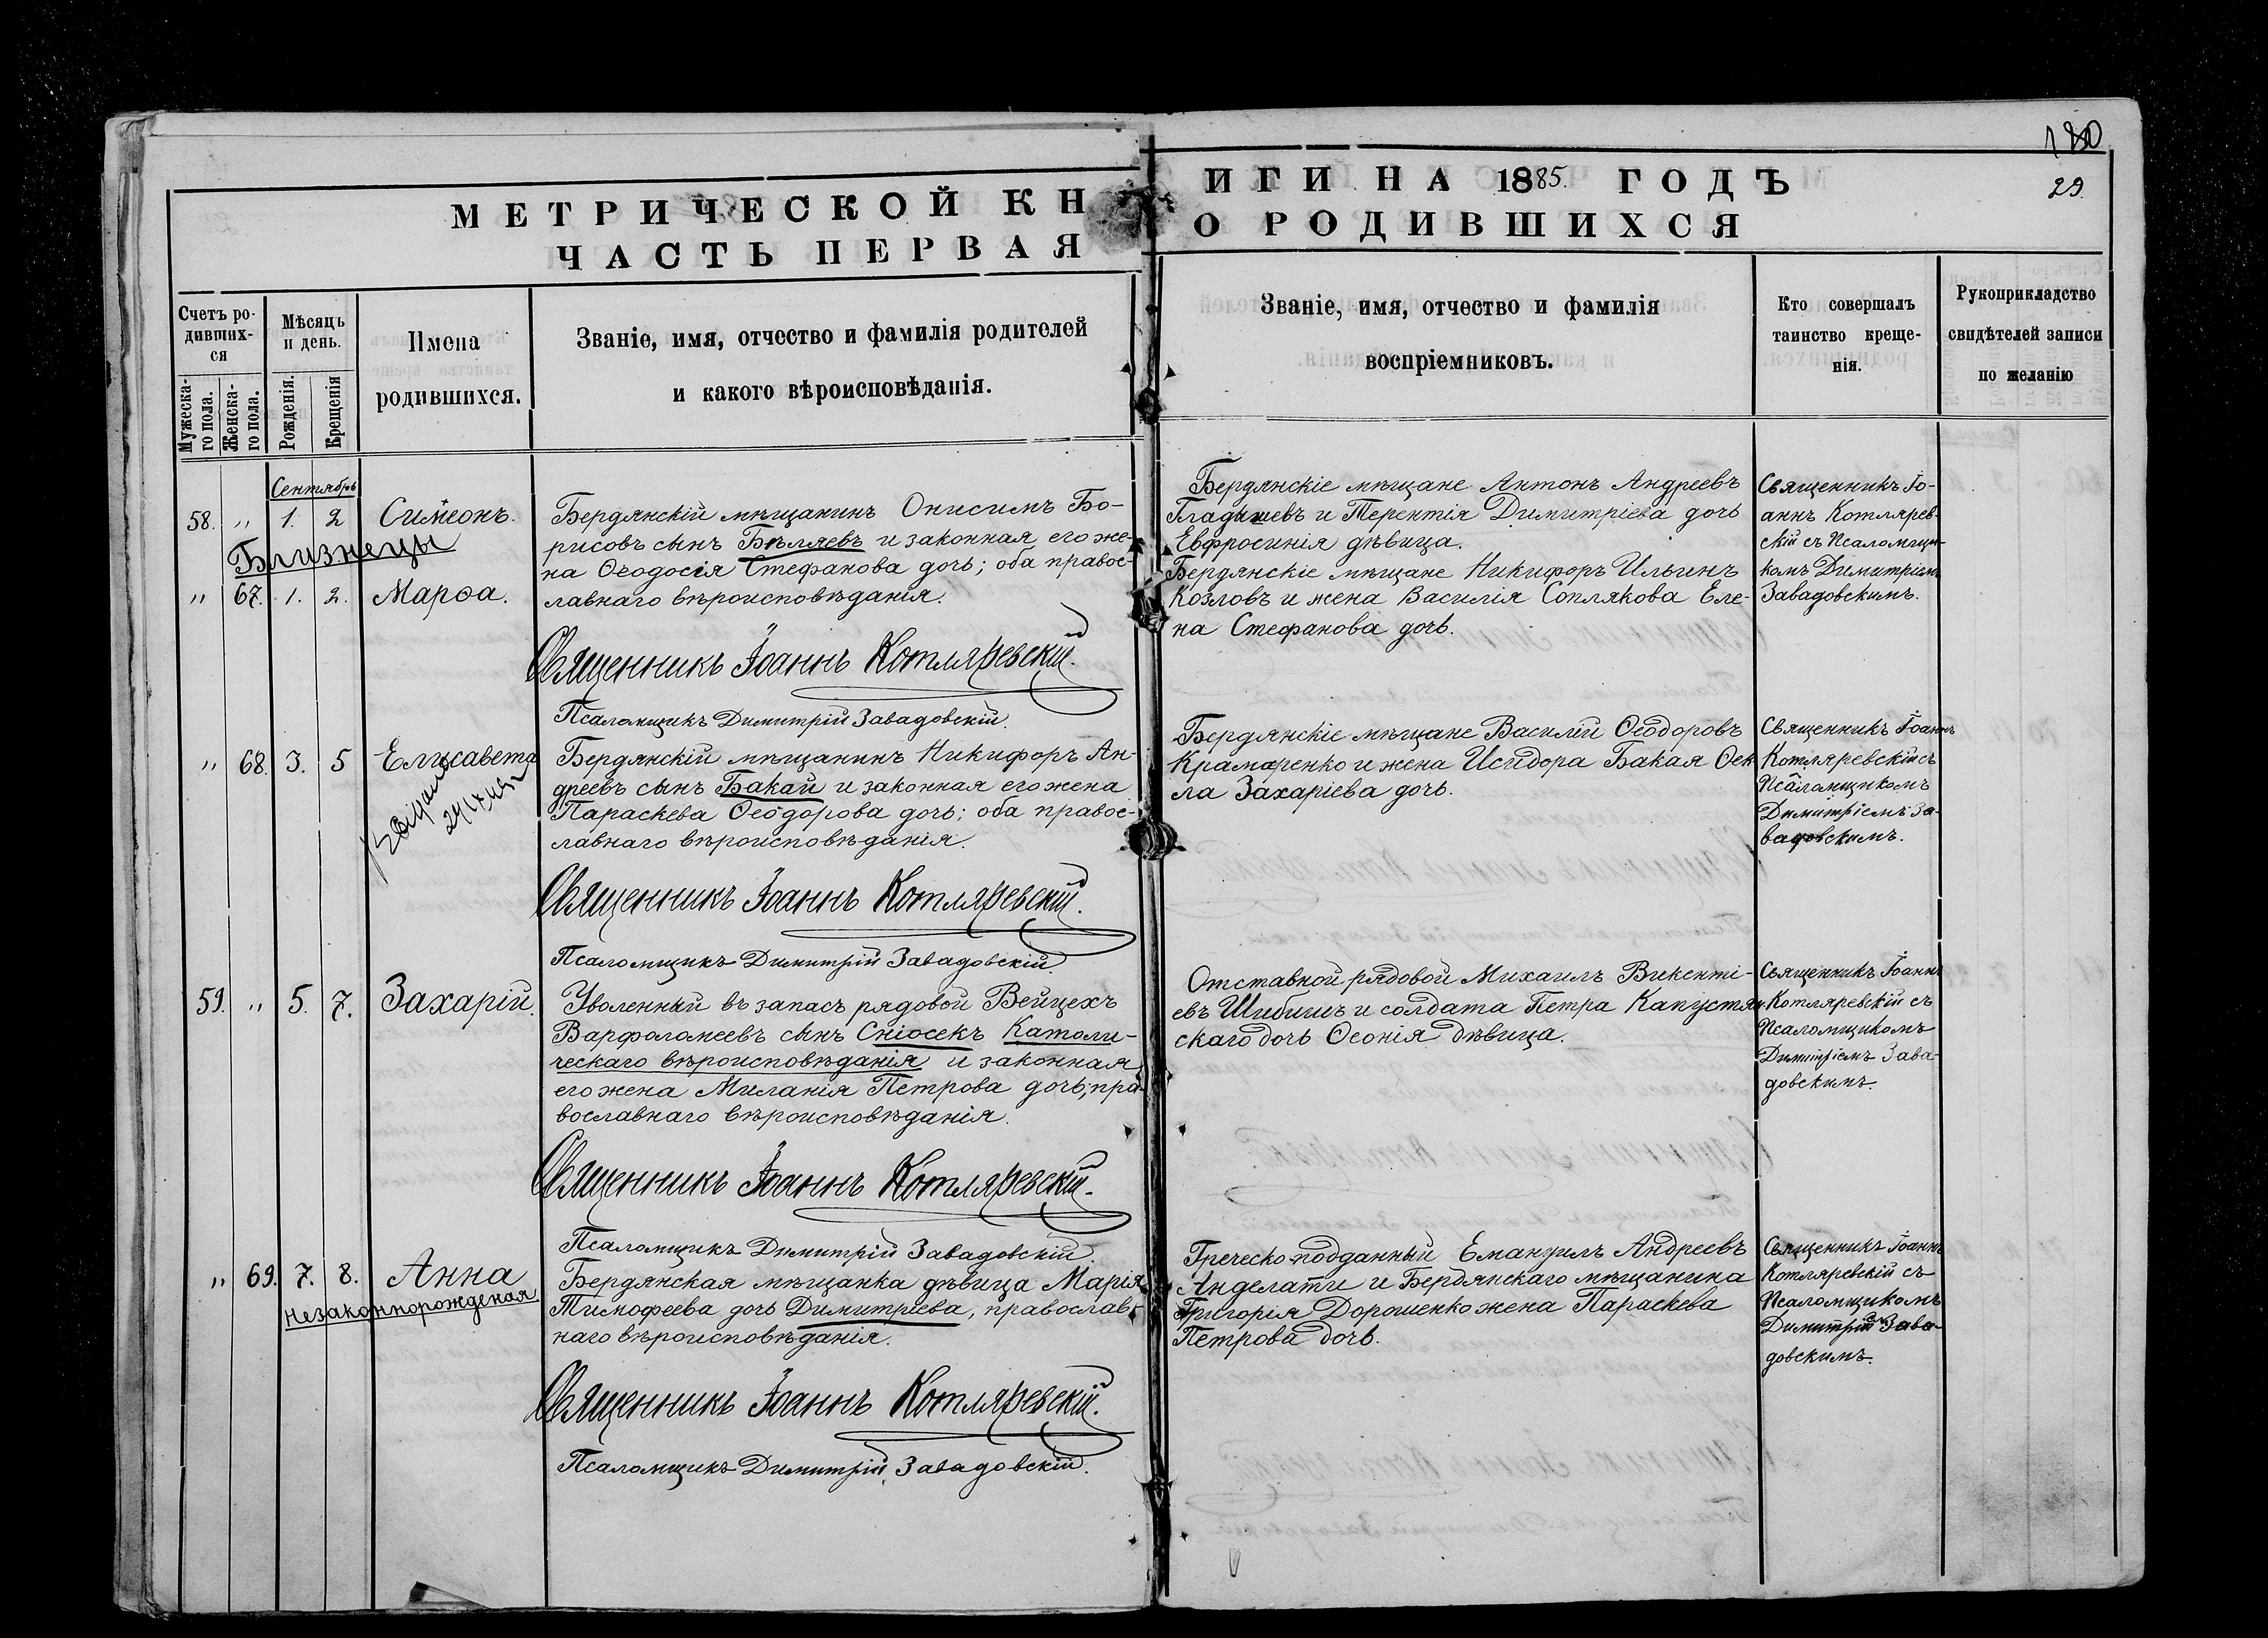 180
29.
МЕТРИЧЕСКОЙ КНИГИ НА 1885. ГОДЪ
ЧАСТЬ ПЕРВАЯ О РОДИВШИХСЯ
Счетъ ро-
дивших-
ся
Мужеска-
го пола.
Женска-
го пола.
Мѣсяцъ
и день.
Рожденія.
Крещенія
Имена
родившихся.
Званіе, имя, отчество и фамилія родителей
и какого вѣроисповѣданія.
Званіе, имя, отчество и фамилія
воспріемниковъ.
Кто совершалъ
таинство креще-
нія.
Рукоприкладство
свидѣтелей записи
по желанію
Сентябрь
58. " 1. 2 Симеонъ.
Близнецы
" 67. 1. 2. Марѳа.
Бердянскій мѣщанинъ Онисимъ Бо-
рисовъ сынъ Бѣляевъ и законная его же-
на Ѳеодосія Стефанова дочь; оба правос-
лавнаго вѣроисповѣданія.
Священникъ Іоаннъ Котляревскій.
Псаломщикъ Димитрій Завадовскій.
Бердянскіе мѣщане Антонъ Андреевъ
Гладышевъ и Терентія Димитріева дочь
Евфросинія дѣвица.
Бердянскіе мѣщане Никифоръ Ильинъ
Козловъ и жена Василія Соплякова Еле-
на Стефанова дочь.
Священникъ Іо-
аннъ Котлярев-
скій съ Псаломщи-
комъ Димитріемъ
Завадовскимъ.
" 68. 3. 5 Елисавета
Бердянскій мѣщанинъ Никифоръ Ан-
дреевъ сынъ Бакай и законная его жена
Параскева Ѳеодорова дочь; оба правос-
лавнаго вѣроисповѣданія.
Священникъ Іоаннъ Котляревскій.
Псаломщикъ Димитрій Завадовскій.
Бердянскіе мѣщане Василій Ѳеодоровъ
Крамаренко и жена Исидора Бакая Ѳек
ла Захаріева дочь.
Священникъ Іоаннъ
Котляревскій съ
Псаломщикомъ
Димитріемъ За-
вадовскимъ.
59. " 5. 7. Захарій.
Уволенный въ запасъ рядовой Вейцехъ
Варфаломеевъ сынъ Сніосекъ Католи-
ческаго вѣроисповѣданія и законная
его жена Миланія Петрова дочь; пра-
вославнаго вѣроисповѣданія.
Священникъ Іоаннъ Котляревскій.
Псаломщикъ Димитрій Завадовскій.
Отставной рядовой Михаилъ Викенті-
евъ Шибишъ и солдата Петра Капустян
скаго дочь Ѳеонія дѣвица.
Священникъ Іоаннъ
Котляревскій съ
Псаломщикомъ
Димитріемъ Зава-
довскимъ.
" 69. 7. 8. Анна
незаконнорожденая
Бердянская мѣщанка дѣвица Марія
Тимофеева дочь Димитріева, православ-
наго вѣроисповѣданія.
Священникъ Іоаннъ Котляревскій.
Псаломщикъ Димитрій Завадовскій.
Греческо подданный Емануилъ Андреевъ
Анделати и Бердянскаго мѣщанина
Григорія Дорошенко жена Параскева
Петрова дочь.
Священникъ Іоаннъ
Котляревскій съ
Псаломщикомъ
Димитріемъ Зава-
довскимъ.